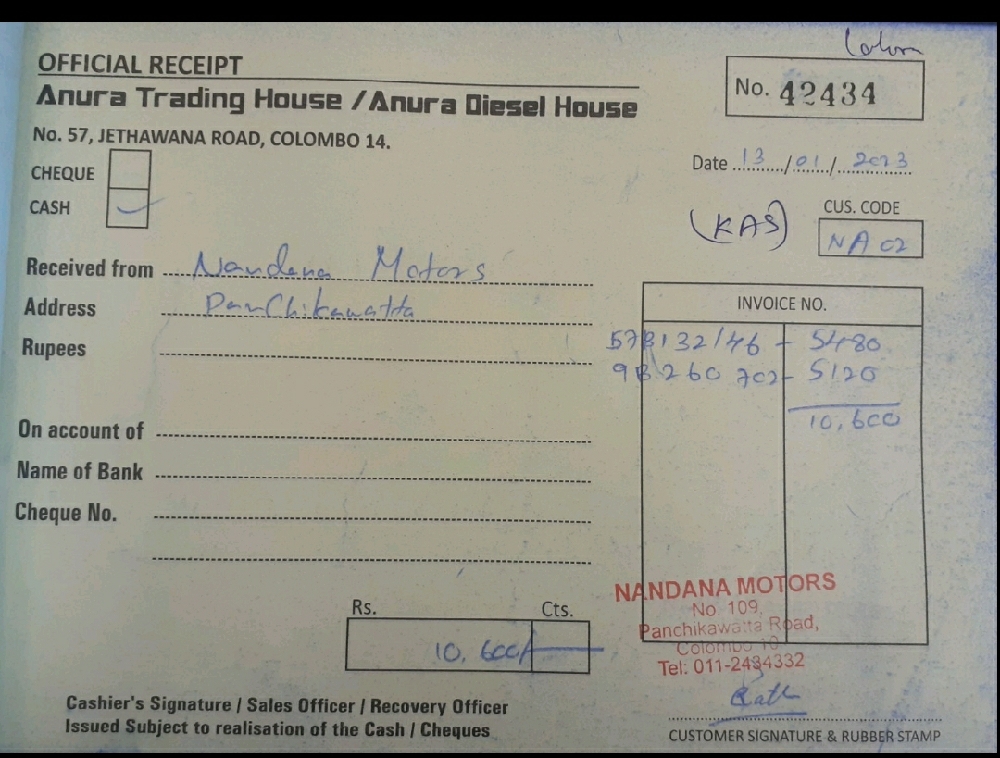 OFFICIAL RECEIPT
Anura Trading House / Anura Diesel House
No. 57, JETHAWANA ROAD, COLOMBO 14.
No. 42434
CHEQUE
CASH
Date 13/01/2023
(KAS)
CUS. CODE
NA 02
Received from Nandana Motors
Address Panchikawatta
Rupees
On account of
Name of Bank
Cheque No.
INVOICE NO.
578132/46 - 5480
98260702 - 5120
10,600
Rs. Cts.
10,600/-
NANDANA MOTORS
No. 109,
Panchikawatta Road,
Colombo 10
Tel: 011-2434332
Cashier's Signature / Sales Officer / Recovery Officer
Issued Subject to realisation of the Cash / Cheques
CUSTOMER SIGNATURE & RUBBER STAMP